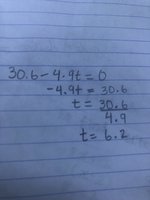 30.6 - 4.9t = 0
-4.9t = 30.6
t = 30.6
4.9
t = 6.2